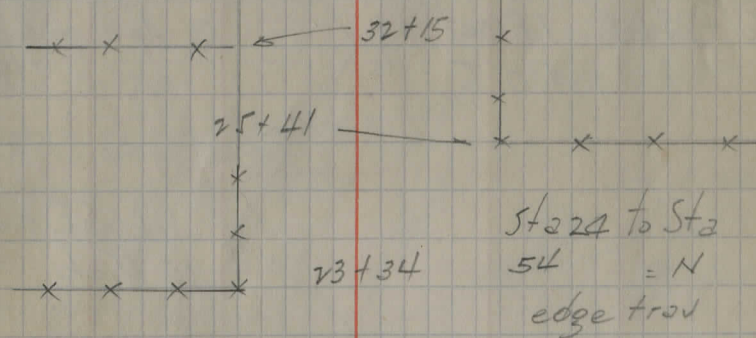 32+15
25+41
23+34
Sta 24 to Sta
54 = N
edge trav